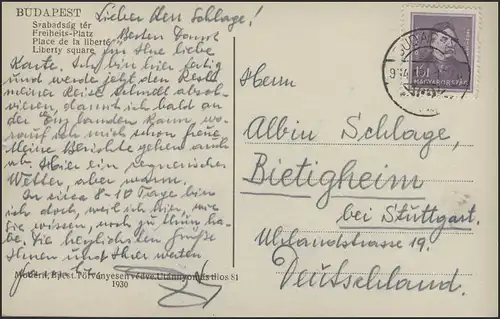 BUDAPEST
Szabadság tér
Freiheits-Platz
Place de la liberté
Liberty square
Lieber Herr Schlage!
Besten Dank
für Ihre liebe
Karte. Ich bin hier fertig
und werde jetzt den Rest
meiner Reise schnell absol-
vieren, damit ich bald an
der Enz landen kann, wo-
rauf ich mich schon freue.
Meine Berichte gehend auch
ab. Hier ein regnerisches
Wetter, aber warm.
In circa 8-10 Tage bin
ich doch, weil ich hier, wie
Sie wissen, noch zu thun ha-
be. Die herzlichsten Grüße
Ihnen und Ihrer werten
1930
BUDAPEST
MAGYARORSZÁG
Herrn
Albin Schlage,
Bietigheim
bei Stuttgart.
Uhlandstrasse 19.
Deutschland.